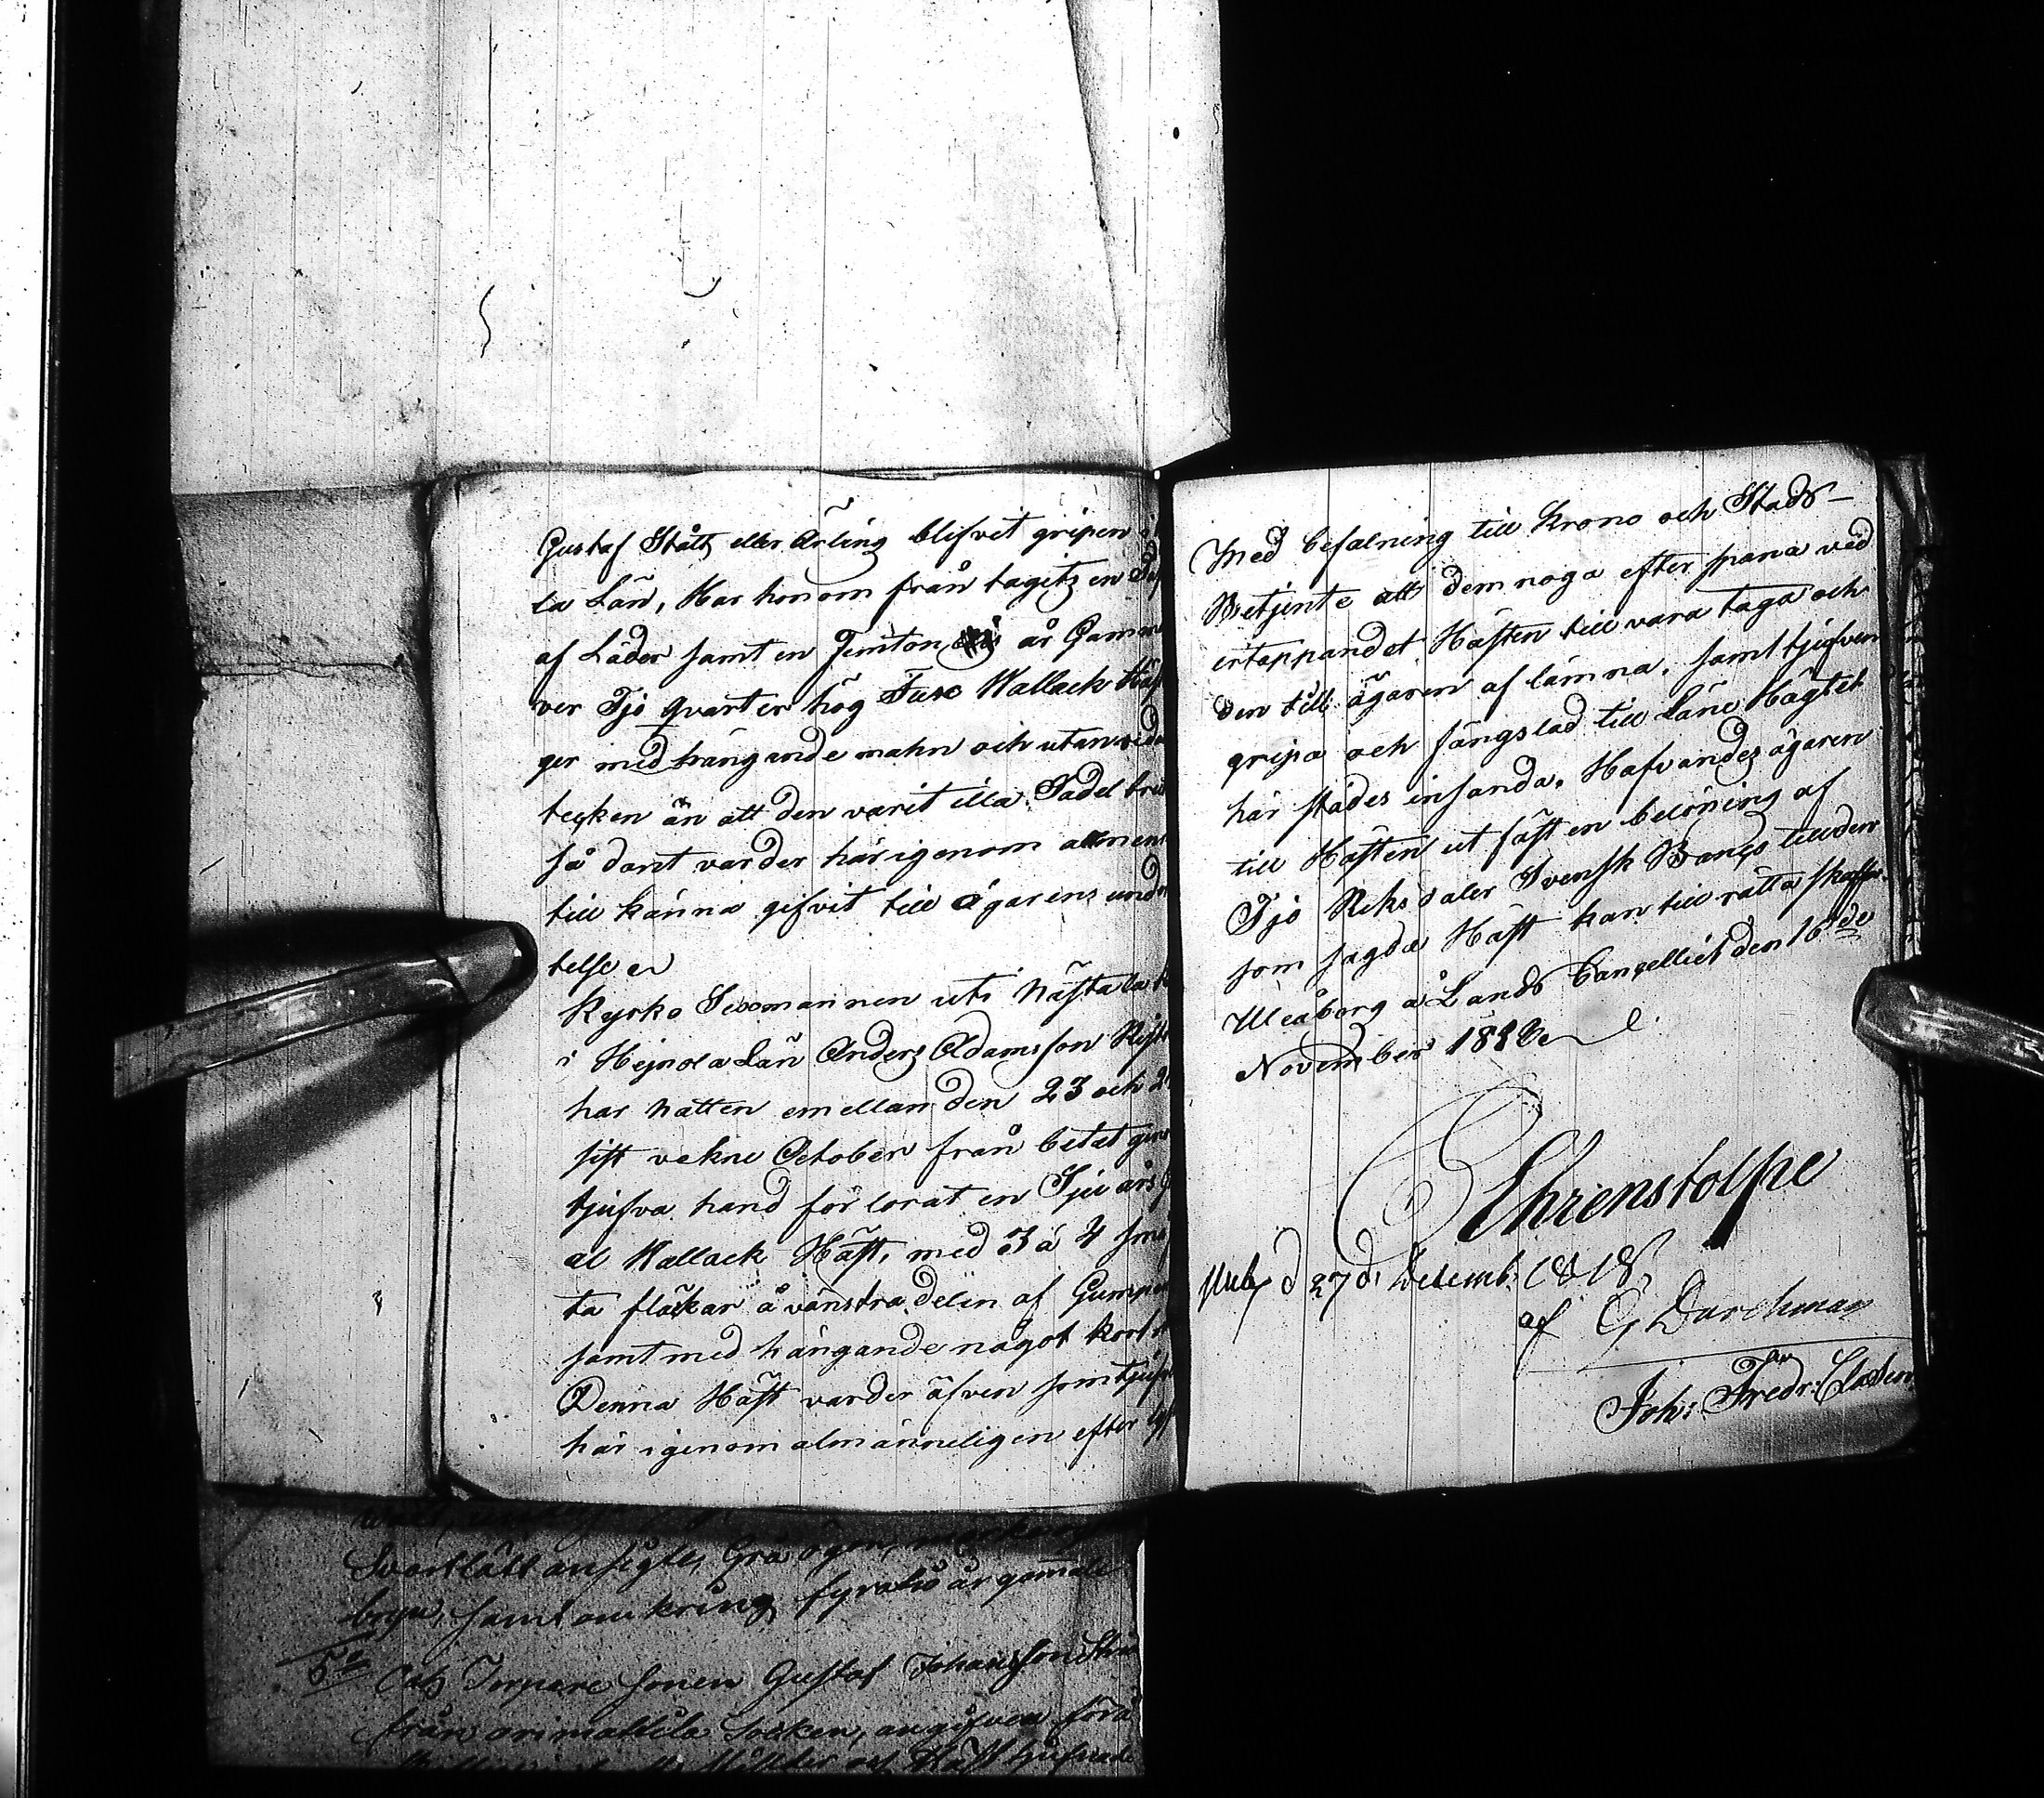 Gustaf Stålt eller Ärling blifvit gripen i
la Län, Har honom från tagitz en
af Läder samt en Femton år Gamm
ver Tjo qvarter hög Fuxe Wallack Häs
ger med hängande mahn och utan
tecken än att den varit illa Sadel bru
så dant varder här igenom almen
till känna gifvit till ägarens und
telse
Kyrko Sexmannen uti
i Hejnola Län Anders Adamsson
har natten emellan den 23 och 2
sist vekne October från betat gen
tjufva hand för lorat en Sju års
al Wallack Häst, med 3 à 4 små
ta fläckar å vänstra delen af
samt med hängande något kort
Denna Häst varder äfven som tjuf
här igenom almänneligen efter lys
Med befalning till Krono och Stads-
Betjente att dem noga efter spana vid
ertappandet Hästen till vara taga och
den till ägaren af lämna, samt tjufven
gripa och fängslad till Läne Hägtet
här städes insända. Hafvandes ägaren
till Hästen ut fäst en belöning af
Tjo Riksdaler Svensk Banco till den
som sagde Häst kan till rätta skaffa.
Uleåborg å Lands Cancelliet den 16de
November 1818.
Ehrenstolpe
Publ d 27 d: Desemb: 1818,
af G Darchman
Joh: Fredr:
Svartlätt ansigte, Grå ögon,
bryn, samt omkring fyratio år gamall
5o Catz Torpare sonen Gustaf Johansson
från orimattila Socken, angifven förä